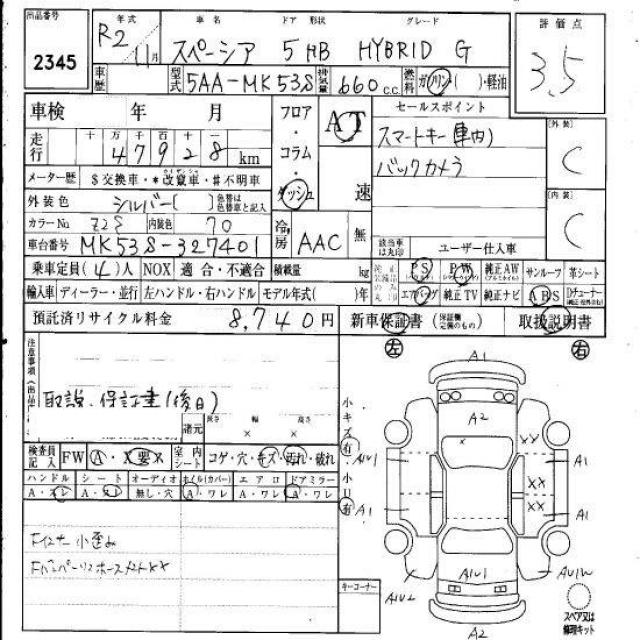 出品番号 年式 車名 ドア 形状 グレード 評価点
2345 R2 11月 スペーシア 5 HB HYBRID G 3.5
車歴 型式 5AA-MK53S 排気量 660 c.c. 燃料 ガソリン( )・軽油
車検 年 月 フロア・コラム・ダッシュ AT 速 セールスポイント [外装] C
走行 十 万 千 百 十 一 47928 km スマートキー(車内)
バックカメラ
メーター歴 $交換車・*改竄車・#不明車 [内装] C
外装色 シルバー( ) 色替は色替車と記入
カラーNo Z2S 内装色 70 冷房 AAC 無 該当車は丸印 ユーザー仕入車
車台番号 MK53S-327401
乗車定員(4)人 NOX 適合・不適合 積載量 kg PS PW 純正AW サンルーフ 革シート
輸入車 ディーラー・並行 左ハンドル・右ハンドル モデル年式( )年 エアバッグ 純正TV 純正ナビ ABS
預託済リサイクル料金 8,740円 新車保証書 (保証編定備のもの) 取扱説明書
注意事項(出品 取説、保証書(後日)
諸元 長さ × 幅 × 高さ
検査員記入 FW A・X要X 室内シート コゲ・穴・キズ・汚れ・破れ
ハンドル シート オーディオ ホイル(カバー) エアロ ドアミラー
A・スレ A・スレ 無し・穴 A・ワレ A・ワレ A・ワレ
Fインナー小歪み
左 右
A1
A2
小キズ有 小U有
×
××
AU1 A1
××
××
A1 A1
AU1
AU2 AU1W
A2
キーコーナー
スペア又は修理キット